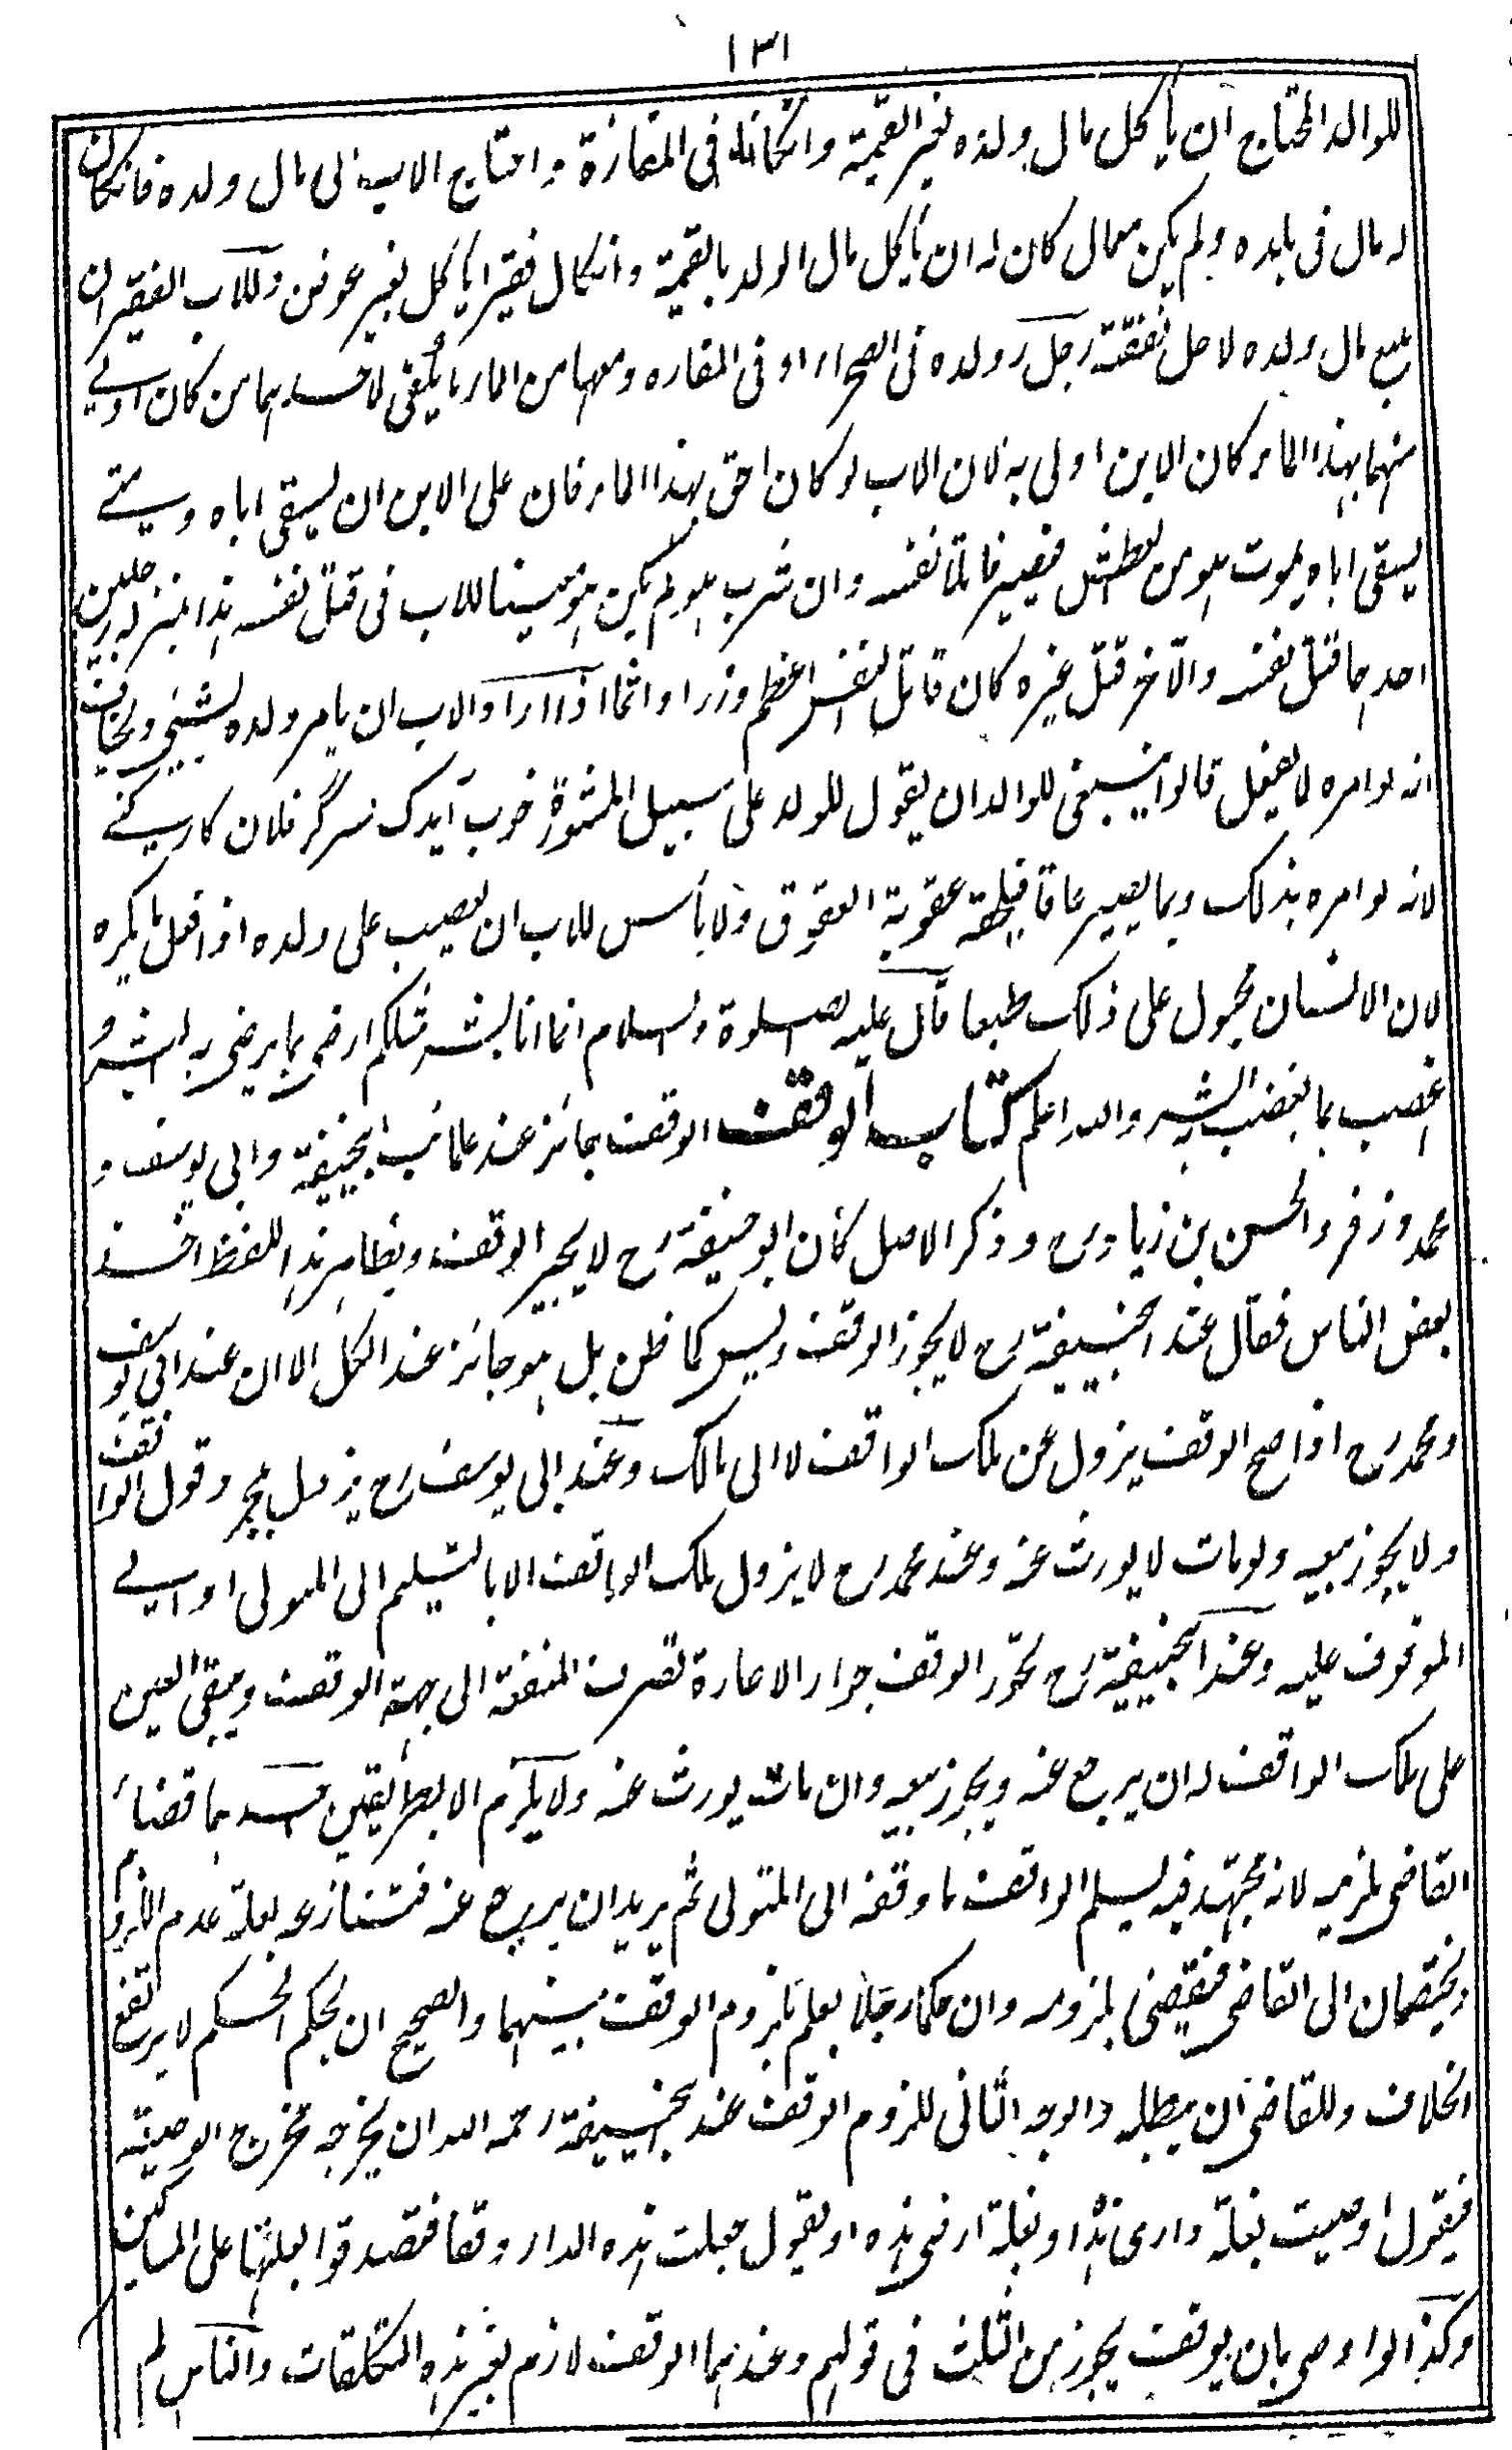 ١٣١
للوالد المحتاج ان يأكل مال ولده بغير القيمة وانكانا فى المفازة واحتاج الاب الى مال ولده فانكان
له مال فى بلده ولم يكن معه مال كان له ان يأكل مال الولد بالقيمة وانكان فقيرا يأكل بغير عوض وللاب الفقير ان
يبيع مال ولده لاجل نفقته رجل وولده فى الصحراء او فى المفازه ومعهما من الماء ما يكفى لاحدهما من كان اولى
منهما بهذا الماء كان الابن اولى به لان الاب لو كان احق بهذا الماء فان على الابن ان يسقى اباه ومتى
يسقى اباه يموت هو من العطش فيصير قاتلا نفسه وان شرب هو لم يكن هو معينا للاب فى قتل نفسه هذا بمنزلة رجلين
احدهما قتل نفسه والآخر قتل غيره كان قاتل نفسه اعظم وزرا واثما اذا اراد الاب ان يامر ولده بشيئ ويخاف
انه لو امره لا يفعل قالوا ينبغى للوالد ان يقول للولد على سبيل المشورة خوب آيدك پسر گر فلان كار كنى
لانه لو امره بذلك ربما يصير عاقا فيلحقه عقوبة العقوق ولا بأس للاب ان يغضب على ولده اذا فعل ما يكره
لان الانسان مجبول على ذلك طبعا قال عليه الصلوة والسلام انما انا بشر مثلكم ارضى بما يرضى به البشر و
اغضب بما يغضب به البشر والله اعلم كتاب الوقف الوقف جائز عند علمائنا ابيحنيفة وابى يوسف و
محمد وزفر والحسن بن زياد رح وذكر الاصل كان ابو حنيفة رح لا يجيز الوقف وبظاهر هذا اللفظ اخذ
بعض الناس فقال عند ابيحنيفة رح لا يجوز الوقف وليس كما ظن بل هو جائز عند الكل الا ان عند ابى يوسف
ومحمد رح اذا صح الوقف يزول عن ملك الواقف لا الى مالك وعند ابى يوسف رح يزول بمجرد قول الواقف
ولا يجوز بيعه ولو مات لا يورث عنه وعند محمد رح لا يزول ملك الواقف الا بالتسليم الى المتولى او الى
الموقوف عليه وعند ابيحنيفة رح يجوز الوقف جواز الاعارة تصرف المنفعة الى جهة الوقف ويبقى العين
على ملك الواقف له ان يرجع عنه ويجوز بيعه وان مات يورث عنه ولا يلزم الا بطريقين احدهما قضاء
القاضى بلزومه لانه مجتهد فيه يسلم الواقف ما وقفه الى المتولى ثم يريد ان يرجع عنه فتنازعه بعلة عدم اللزوم
ويختصمان الى القاضى فيقضى بلزومه وان حكما رجلا بلزوم الوقف بينهما والصحيح ان بحكم الحكم لا يرتفع
الخلاف وللقاضى ان يبطله والوجه الثانى للزوم الوقف عند ابيحنيفة رحمه الله ان يخرجه مخرج الوصية
فيقول اوصيت بغلة دارى هذا او بغلة ارضى هذه او يقول جعلت هذه الدار وقفا فتصدقوا بغلتها على المساكين
وكذا لو اوصى بان يوقف يجوز من الثلث فى قولهم وعندهما الوقف لازم بغير هذه التكلفات والناس لم